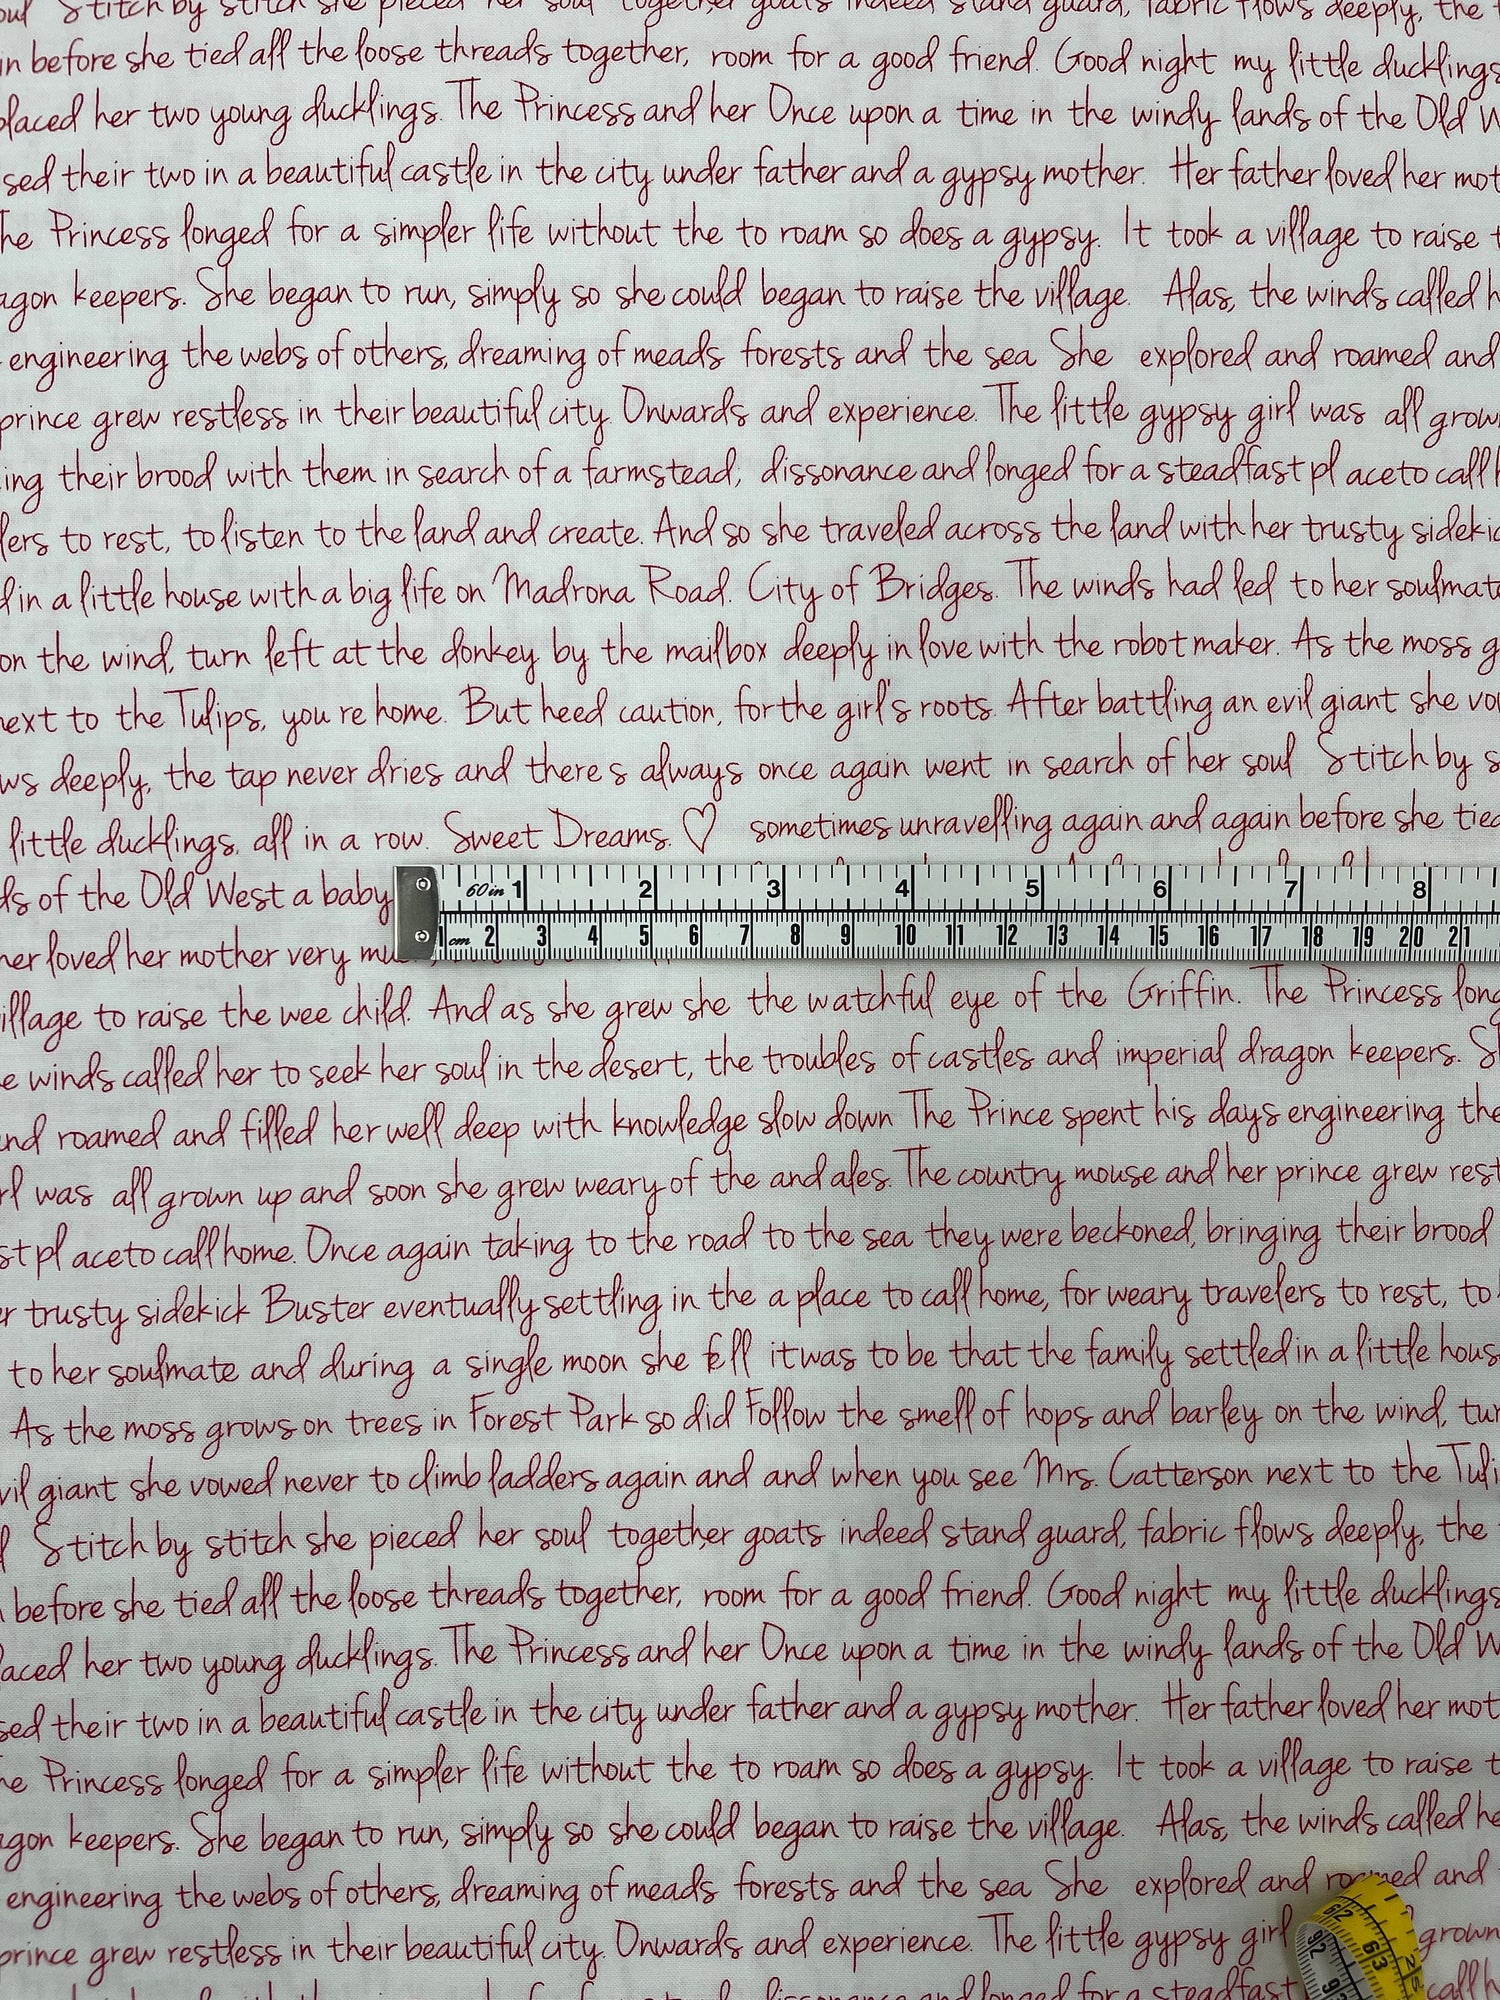 Stitch by stitch she pieced her soul together goats indeed stand guard, fabric flows deeply, the
before she tied all the loose threads together, room for a good friend. Good night my little ducklings
placed her two young ducklings. The Princess and her Once upon a time in the windy lands of the Old
their two in a beautiful castle in the city under father and a gypsy mother. Her father loved her
Princess longed for a simpler life without the to roam so does a gypsy. It took a village to raise
keepers. She began to run, simply so she could began to raise the village. Alas, the winds called
engineering the webs of others, dreaming of meads forests and the sea She explored and roamed and
prince grew restless in their beautiful city. Onwards and experience. The little gypsy girl was all grow
ing their brood with them in search of a farmstead, dissonance and longed for a steadfast pl aceto call
lers to rest, to listen to the land and create. And so she traveled across the land with her trusty sidekic
d in a little house with a big life on Madrona Road. City of Bridges. The winds had led to her soulmate
on the wind, turn left at the donkey by the mailbox deeply in love with the robot maker. As the moss g
next to the Tulips, you re home. But heed caution, for the girl's roots. After battling an evil giant she vo
ws deeply, the tap never dries and there s always once again went in search of her soul Stitch by s
little ducklings, all in a row. Sweet Dreams. ♡ sometimes unravelling again and again before she tied
ds of the Old West a baby
60in 1 2 3 4 5 6 7 8
1 cm 2 3 4 5 6 7 8 9 10 11 12 13 14 15 16 17 18 19 20 21
her loved her mother very mu
village to raise the wee child. And as she grew she the watchful eye of the Griffin. The Princess long
e winds called her to seek her soul in the desert, the troubles of castles and imperial dragon keepers. S
and roamed and filled her well deep with knowledge slow down The Prince spent his days engineering the
rl was all grown up and soon she grew weary of the and ales. The country mouse and her prince grew rest
st pl aceto call home. Once again taking to the road to the sea they were beckoned, bringing their brood
er trusty sidekick Buster eventually settling in the a place to call home, for weary travelers to rest, to
to her soulmate and during a single moon she fell it was to be that the family settled in a little hous
As the moss grows on trees in Forest Park so did Follow the smell of hops and barley on the wind, tur
vil giant she vowed never to climb ladders again and and when you see Mrs. Catterson next to the Tuli
Stitch by stitch she pieced her soul together goats indeed stand guard, fabric flows deeply, the
before she tied all the loose threads together, room for a good friend. Good night my little ducklings
laced her two young ducklings. The Princess and her Once upon a time in the windy lands of the Old W
sed their two in a beautiful castle in the city under father and a gypsy mother. Her father loved her mot
he Princess longed for a simpler life without the to roam so does a gypsy. It took a village to raise t
agon keepers. She began to run, simply so she could began to raise the village. Alas, the winds called he
engineering the webs of others, dreaming of meads forests and the sea She explored and roamed and
prince grew restless in their beautiful city. Onwards and experience. The little gypsy girl grown
62 63
92
dissonance and longed for a steadfast call h